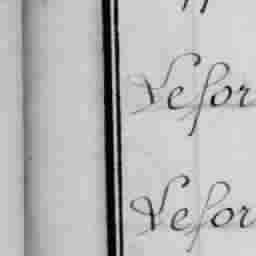 Vefor
Vefor